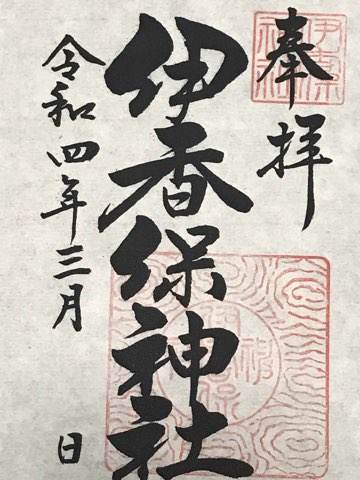 奉拝
伊香保神社
令和四年三月 日